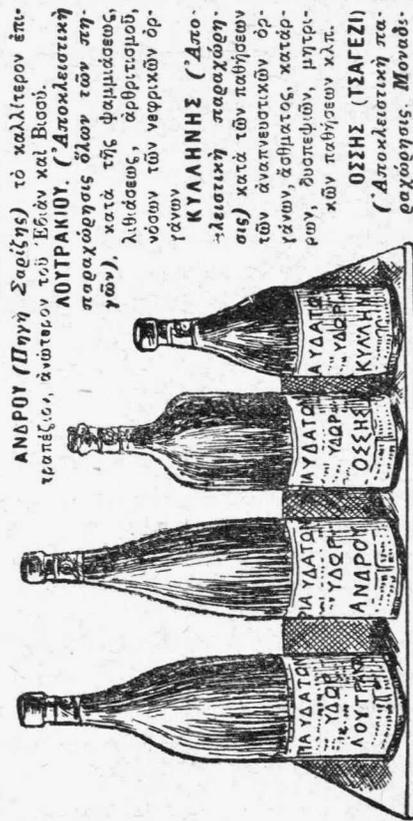 ΑΝΔΡΟΥ (Πηγὴ Σαρίζης) τὸ καλλίτερον ἐπι-
τραπέζιον, ἀνώτερον τοῦ Ἐβιὰν καὶ Βισσύ.
ΛΟΥΤΡΑΚΙΟΥ. (Ἀποκλειστικὴ
παραχώρησις ὅλων τῶν πη-
γῶν), κατὰ τῆς ψαμμιάσεως,
λιθιάσεως, ἀρθριτισμοῦ,
νόσων τῶν νεφρικῶν ὀρ-
γάνων
ΚΥΛΛΗΝΗΣ (Ἀπο-
κλειστικὴ παραχώρη-
σις) κατὰ τῶν παθήσεων
τῶν ἀναπνευστικῶν ὀρ-
γάνων, ἄσθματος, κατάρ-
ρων, δυσπεψιῶν, μητρι-
κῶν παθήσεων κλπ.
ΟΣΣΗΣ (ΤΣΑΓΕΖΙ)
(Ἀποκλειστικὴ πα-
ραχώρησις. Μοναδι-
ΙΑΥΔΑΤΩΝ
ΥΔΩΡ
ΛΟΥΤΡΑΚΙΟ
ΙΑΥΔΑΤΩΝ
ΥΔΩΡ
ΑΝΔΡΟΥ
ΙΑΥΔΑΤΩΝ
ΥΔΩΡ
ΟΣΣΗΣ
ΑΥΔΑΤΩ
ΥΔΩΡ
ΚΥΛΛΗΝΗ